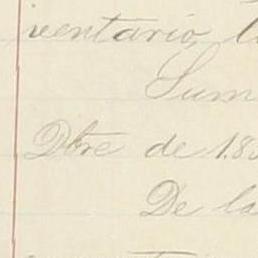 ventario, l
Sum
Dbre de 1.8
De la